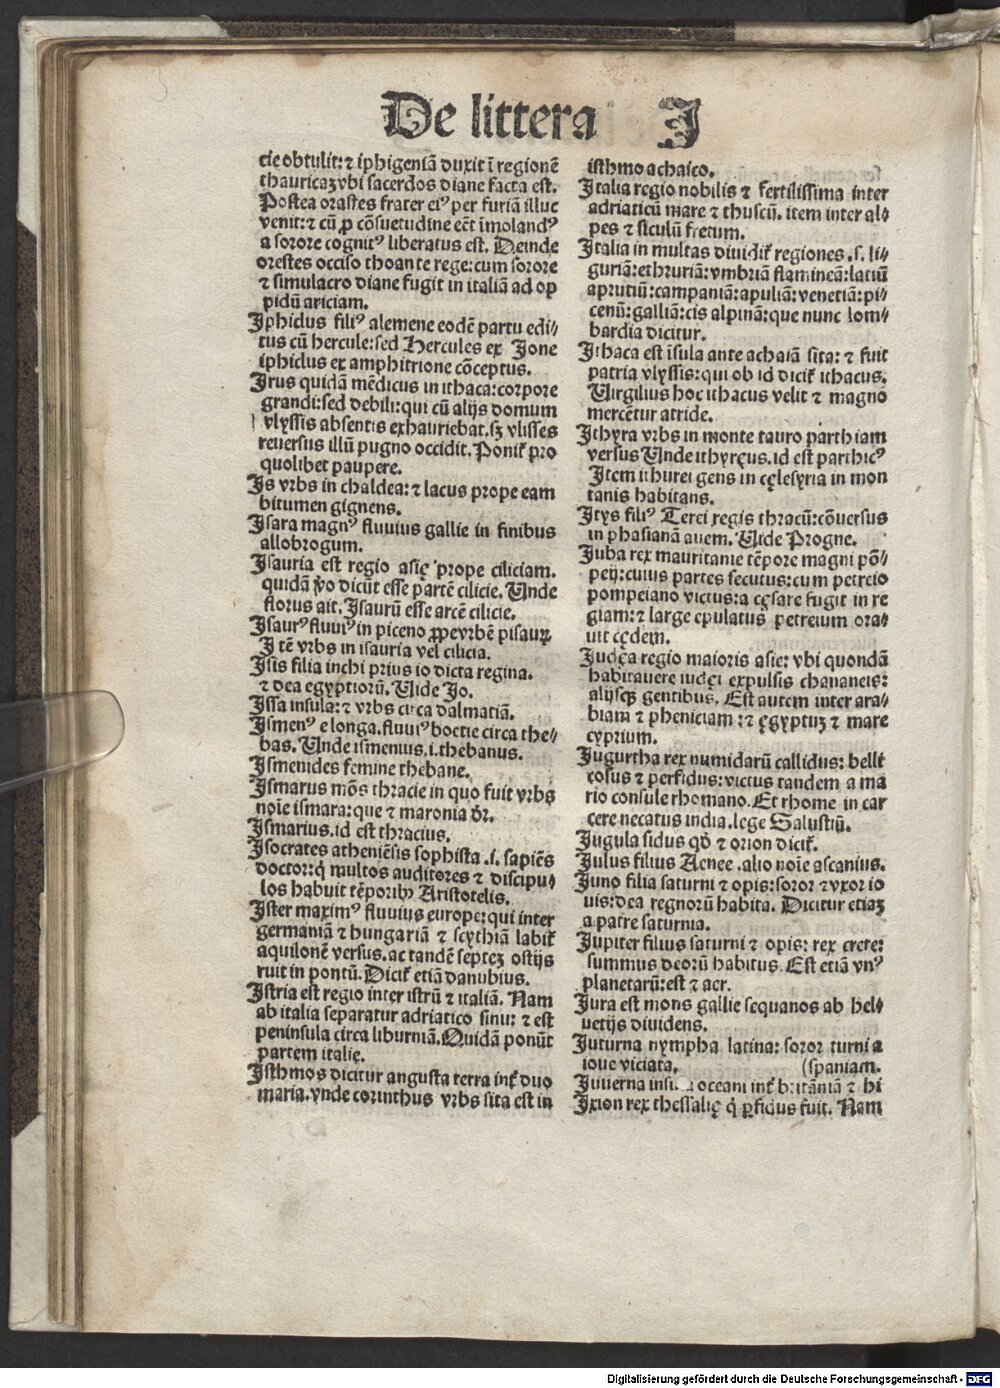 De littera I
tie obtulit: ⁊ iphigeniā duxit ī regionē
thauricaꝫ vbi sacerdos diane facta est.
Postea orastes frater eiꝰ per furiā illuc
venit: ⁊ cū ꝓ cōsuetudine eēt īmolandꝰ
a sorore cognitꝰ liberatus est. Deinde
orestes occiso thoante rege: cum sorore
⁊ simulacro diane fugit in italiā ad op
pidū ariciam.
Iphidus filiꝰ alemene eodē partu edi⸗
tus cū hercule: sed Hercules ex Ione
iphidus ex amphitrione cōceptus.
Irus quidā mēdicus in ithaca: corpore
grandi: sed debili: qui cū alijs domum
vlyssis absentis exhauriebat. sꝫ vlisses
reuersus illū pugno occidit. Poniť pro
quolibet paupere.
Is vrbs in chaldea: ⁊ lacus prope eam
bitumen gignens.
Isara magnꝰ fluuius gallie in finibus
allobrogum.
Isauria est regio asię prope ciliciam.
quidā v̊o dicūt esse partē cilicie. Unde
florus ait. Isaurū esse arcē cilicie.
Isaurꝰ fluuiꝰ in piceno ꝓpe vrbē pisauꝝ
Itē vrbs in isauria vel cilicia.
Isis filia inchi prius io dicta regina.
⁊ dea egyptiorū. Uide Io.
Issa insula: ⁊ vrbs circa dalmatiā.
Ismenꝰ e longa. fluuiꝰ boetie circa the⸗
bas. Unde ismenius .i. thebanus.
Ismenides femine thebane.
Ismarus mōs thracie in quo fuit vrbs
noīe ismara: que ⁊ maronia dr̄.
Ismarius. id est thracius.
Isocrates atheniēsis sophista .i. sapiēs
doctor: q̇ multos auditores ⁊ discipu⸗
los habuit tēporibꝫ Aristotelis.
Ister maximꝰ fluuius europe: qui inter
germaniā ⁊ hungariā ⁊ scythiā labiť
aquilonē versus. ac tandē septeꝫ ostijs
ruit in pontū. Diciť etiā danubius.
Istria est regio inter istrū ⁊ italiā. Nam
ab italia separatur adriatico sinu: ⁊ est
peninsula circa liburniā. Quidā ponūt
partem italię.
Isthmos dicitur angusta terra inť duo
maria. vnde corinthus vrbs sita est in
isthmo achaico.
Italia regio nobilis ⁊ fertilissima inter
adriaticū mare ⁊ thuscū. item inter al⸗
pes ⁊ siculū fretum.
Italia in multas diuidiť regiones .s. li⸗
guriā: ethruriā: vmbriā flamineā: latiū
aprutiū: campaniā: apuliā: venetiā: pi⸗
cenū: galliā: cis alpinā: que nunc lom⸗
bardia dicitur.
Ithaca est īsula ante achaiā sita: ⁊ fuit
patria vlyssis: qui ob id diciť ithacus.
Uirgilius hoc ithacus velit ⁊ magno
mercētur atride.
Ithyra vrbs in monte tauro parthiam
versus Unde ithyręus. id est parthicꝰ
Item ithurei gens in cęlesyria in mon
tanis habitans.
Itys filiꝰ Terei regis thracū: cōuersus
in phasianā auem. Uide Progne.
Iuba rex mauritanie tēpore magni pō⸗
peij: cuius partes secutus: cum petreio
pompeiano victus: a cęsare fugit in re
giam: ⁊ large epulatus petreium ora⸗
uit cędem.
Iudęa regio maioris asie: vbi quondā
habitauere iudęi expulsis chananeis:
alijsqꝫ gentibus. Est autem inter ara⸗
biam ⁊ pheniciam: ⁊ ęgyptuꝫ ⁊ mare
cyprium.
Iugurtha rex numidarū callidus: belli
cosus ⁊ perfidus: victus tandem a ma
rio consule rhomano. Et rhome in car
cere necatus india. lege Salustiū.
Iugula sidus qd̄ ⁊ orion diciť.
Iulus filius Aenee. alio noīe ascanius.
Iuno filia saturni ⁊ opis: soror ⁊ vxor io
uis: dea regnorū habita. Dicitur etiaꝫ
a patre saturnia.
Iupiter filius saturni ⁊ opis: rex crete:
summus deorū habitus. Est etiā vnꝰ
planetarū: est ⁊ aer.
Iura est mons gallie sequanos ab hel⸗
uetijs diuidens.
Iuturna nympha latina: soror turni a
ioue viciata. (spaniam.
Iuuerna insula oceani inť britāniā ⁊ hi
Ixion rex thessalię q̇ ꝑfidus fuit. Nam
Digitalisierung gefördert durch die Deutsche Forschungsgemeinschaft - DFG